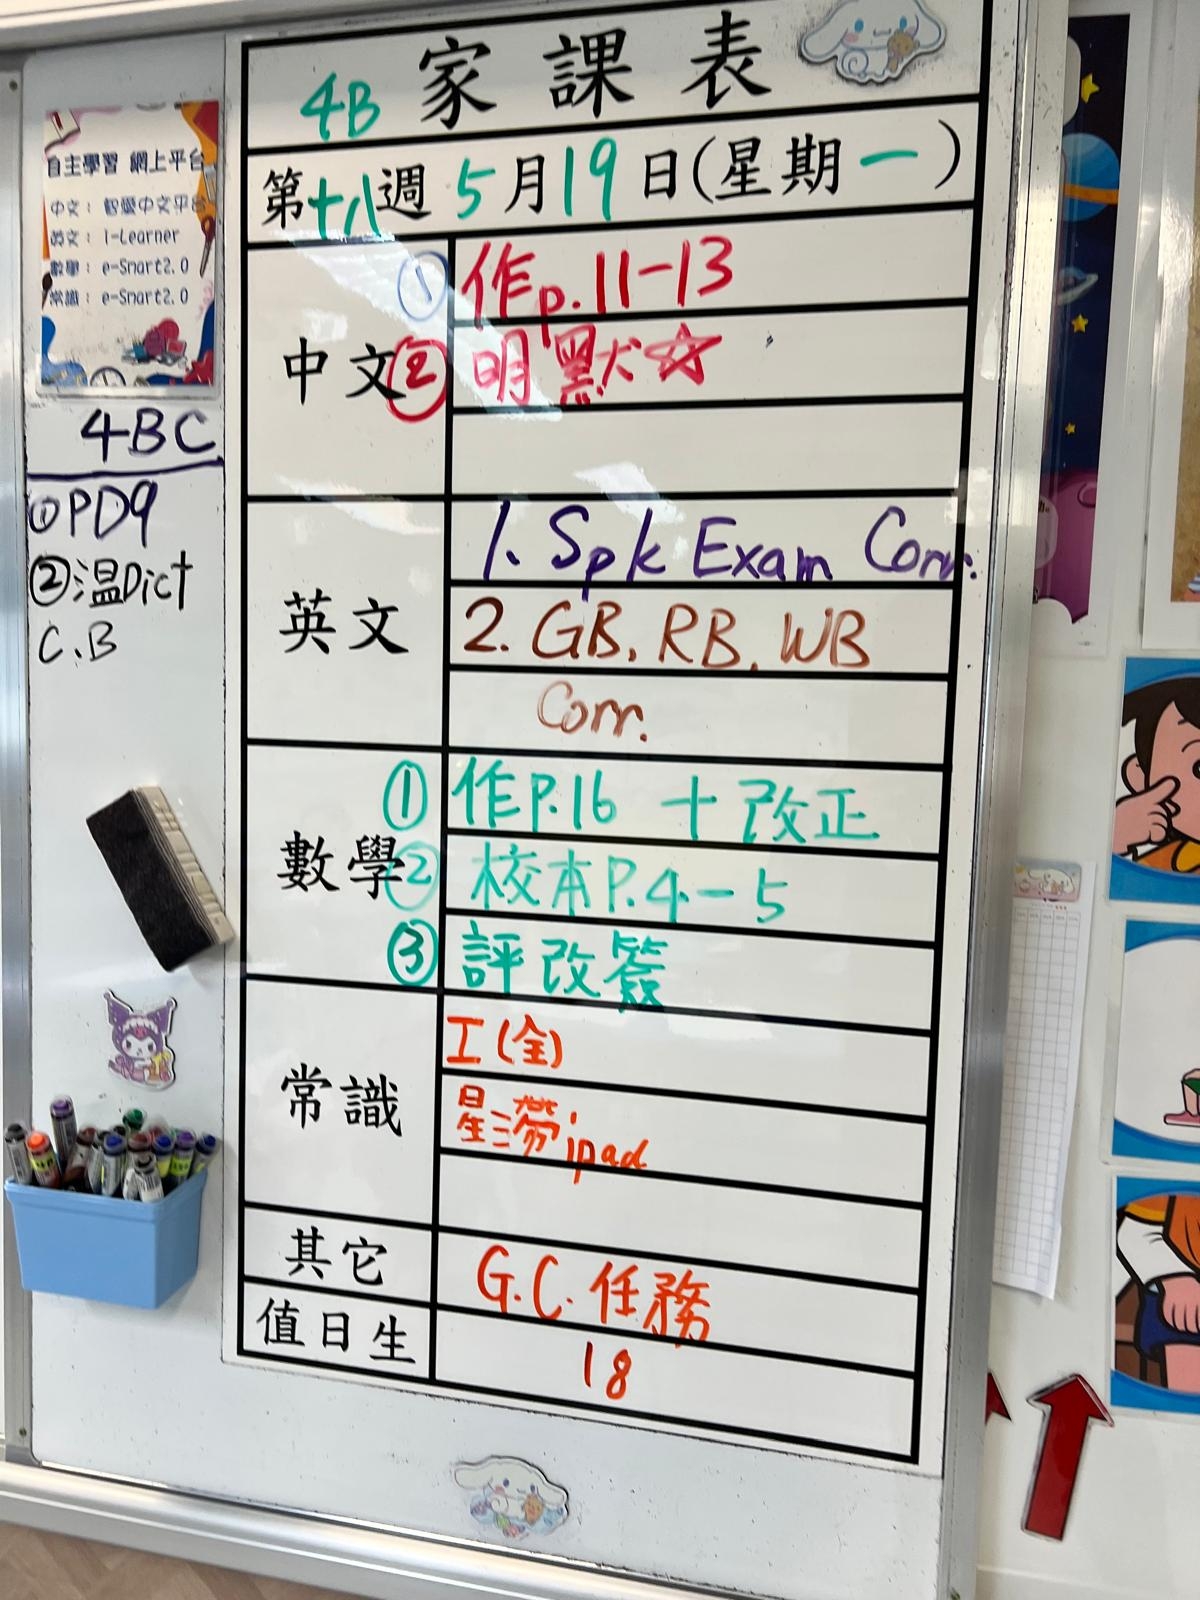 4B 家課表
第十八週 5月19日(星期一)
中文
① 作p.11-13
② 明默☆
英文
1. Spk Exam Corr.
2. GB, RB, WB
Corr.
數學
① 作P.16 十改正
② 校本P.4-5
③ 評改簽
常識
工(全)
星澇ipad
其它
G.C.任務
值日生
18
自主學習 網上平台
中文： 智愛中文平台
英文： I-Learner
數學： e-Smart2.0
常識： e-Smart2.0
4BC
①PD9
②温Dict
C.B